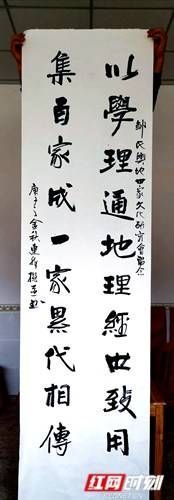 鄒氏輿地世家文化研究會留念
以學理通地理經世致用
集百家成一家累代相傳
庚子金秋
红网时刻